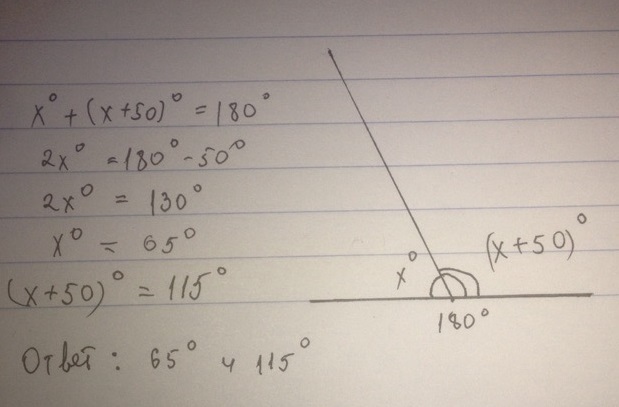 x° + (x+50)° = 180°
2x° = 180° - 50°
2x° = 130°
x° = 65°
(x+50)° = 115°
Ответ: 65° и 115°
x°
(x+50)°
180°